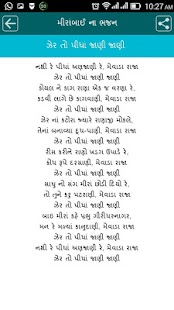 10:27 AM
મીરાંબાઈ ના ભજન
ઝેર તો પીધાં જાણી જાણી
નથી રે પીધાં અણજાણી રે, મેવાડા રાજા
ઝેર તો પીધાં જાણી જાણી
કોયલ ને કાગ રાણા એક જ વરણા રે,
કડવી લાગે છે કાગવાણી, મેવાડા રાજા
ઝેર તો પીધાં જાણી જાણી
ઝેર નાં કટોરા જ્યારે રાણાજી મોકલે,
તેનાં બનાવ્યા દૂધ-પાણી, મેવાડા રાજા
ઝેર તો પીધાં જાણી જાણી
રીસ કરીને રાણો ખડગ ઉપાડે રે,
ક્રોધ રૂપે દરસાણી, મેવાડા રાજા
ઝેર તો પીધાં જાણી જાણી
સાધુ નો સંગ મીરાં છોડી દિયો રે,
તો તુને કરૂં પટરાણી, મેવાડા રાજા
ઝેર તો પીધાં જાણી જાણી
બાઈ મીરાં કહે પ્રભુ ગીરીધરનાગર,
મન રે મળ્યાં કાનુદાણી, મેવાડા રાજા
ઝેર તો પીધાં જાણી જાણી
નથી રે પીધાં અણજાણી રે, મેવાડા રાજા
ઝેર તો પીધાં જાણી જાણી